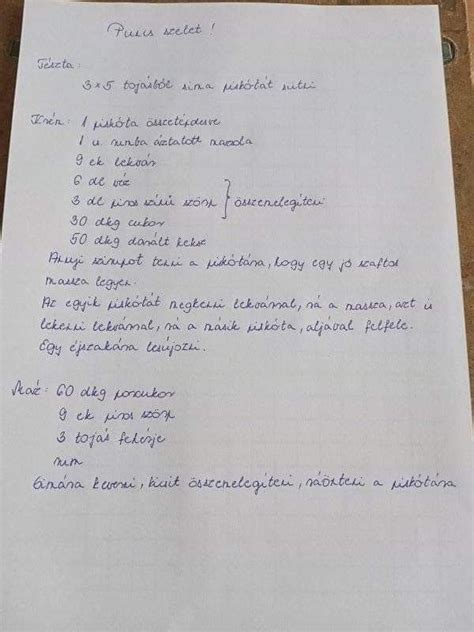 Puncs szelet!
Tészta:
3×5 tojásból sima piskótát sütni
Krém: 1 piskóta összetördelve
1 ü. rumba áztatott mazsola
9 ek lekvár
6 dl víz
3 dl piros színű szörp } összemelegíteni
30 dkg cukor
50 dkg darált keksz
Annyi szirupot tenni a piskótára, hogy egy jó szaftos
massza legyen.
Az egyik piskótát megkenni lekvárral, rá a massza, azt is
lekenni lekvárral, rá a másik piskóta, aljával felfele.
Egy éjszakára lesújozni.
Máz: 60 dkg porcukor
9 ek piros szörp
3 tojás fehérje
rum
Simára keverni, kicsit összemelegíteni, ráönteni a piskótára